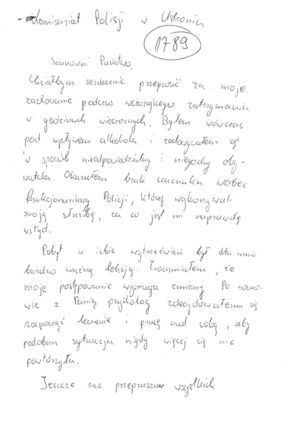 - Komisariat Policji w Ustroniu
1789
Szanowni Państwo,
Chciałbym serdecznie przeprosić za moje
zachowanie podczas wczorajszego zatrzymania
w godzinach wieczornych. Byłem wówczas
pod wpływem alkoholu i zachowywałem się
w sposób nieodpowiedzialny i niegodny oby-
watela. Okazałem brak szacunku wobec
funkcjonariuszy Policji, którzy wykonywali
swoją służbę, za co jest mi naprawdę
wstyd.
Pobyt w izbie wytrzeźwień był dla mnie
bardzo ważną lekcją. Zrozumiałem, że
moje postępowanie wymaga zmiany. Po rozmo-
wie z Panią psycholog zdecydowałem się
rozpocząć leczenie i pracę nad sobą, aby
podobna sytuacja nigdy więcej się nie
powtórzyła.
Jeszcze raz przepraszam wszystkich